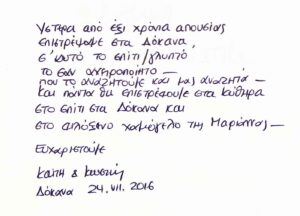 Υστερα από έξι χρόνια απουσίας
επιστρέψαμε στα Δόκανα,
σ' αυτό το σπίτι/γλυπτό
το σαν αχειροποίητο —
που το αναζητούμε και μας αναζητά —
και πάντα θα επιστρέφουμε στα Κύθηρα
στο σπίτι στα Δόκανα και
στο φιλόξενο χαμόγελο της Μαριάννας —
Ευχαριστούμε
Καίτη & Κωστής
Δόκανα 24.VII.2016